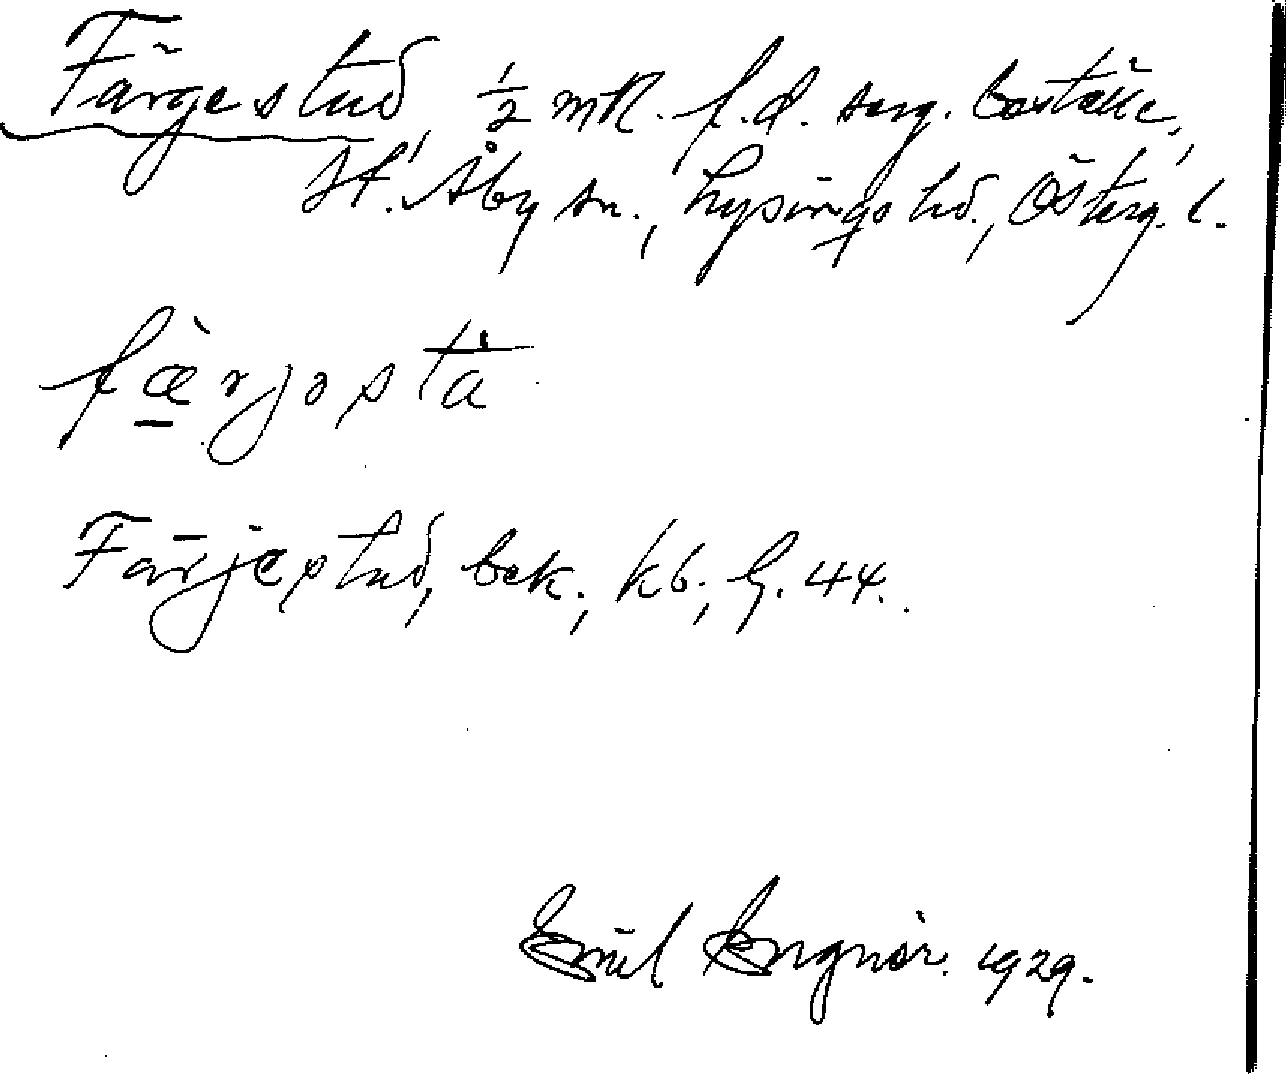 Färgestad, 1/2 mtl. f.d. serg. boställe,
St. Åby sn., Lysings hd., Österg. l.
færjosta
Färjestad, bek., kb., G. 44.
Emil Engnér. 1929.